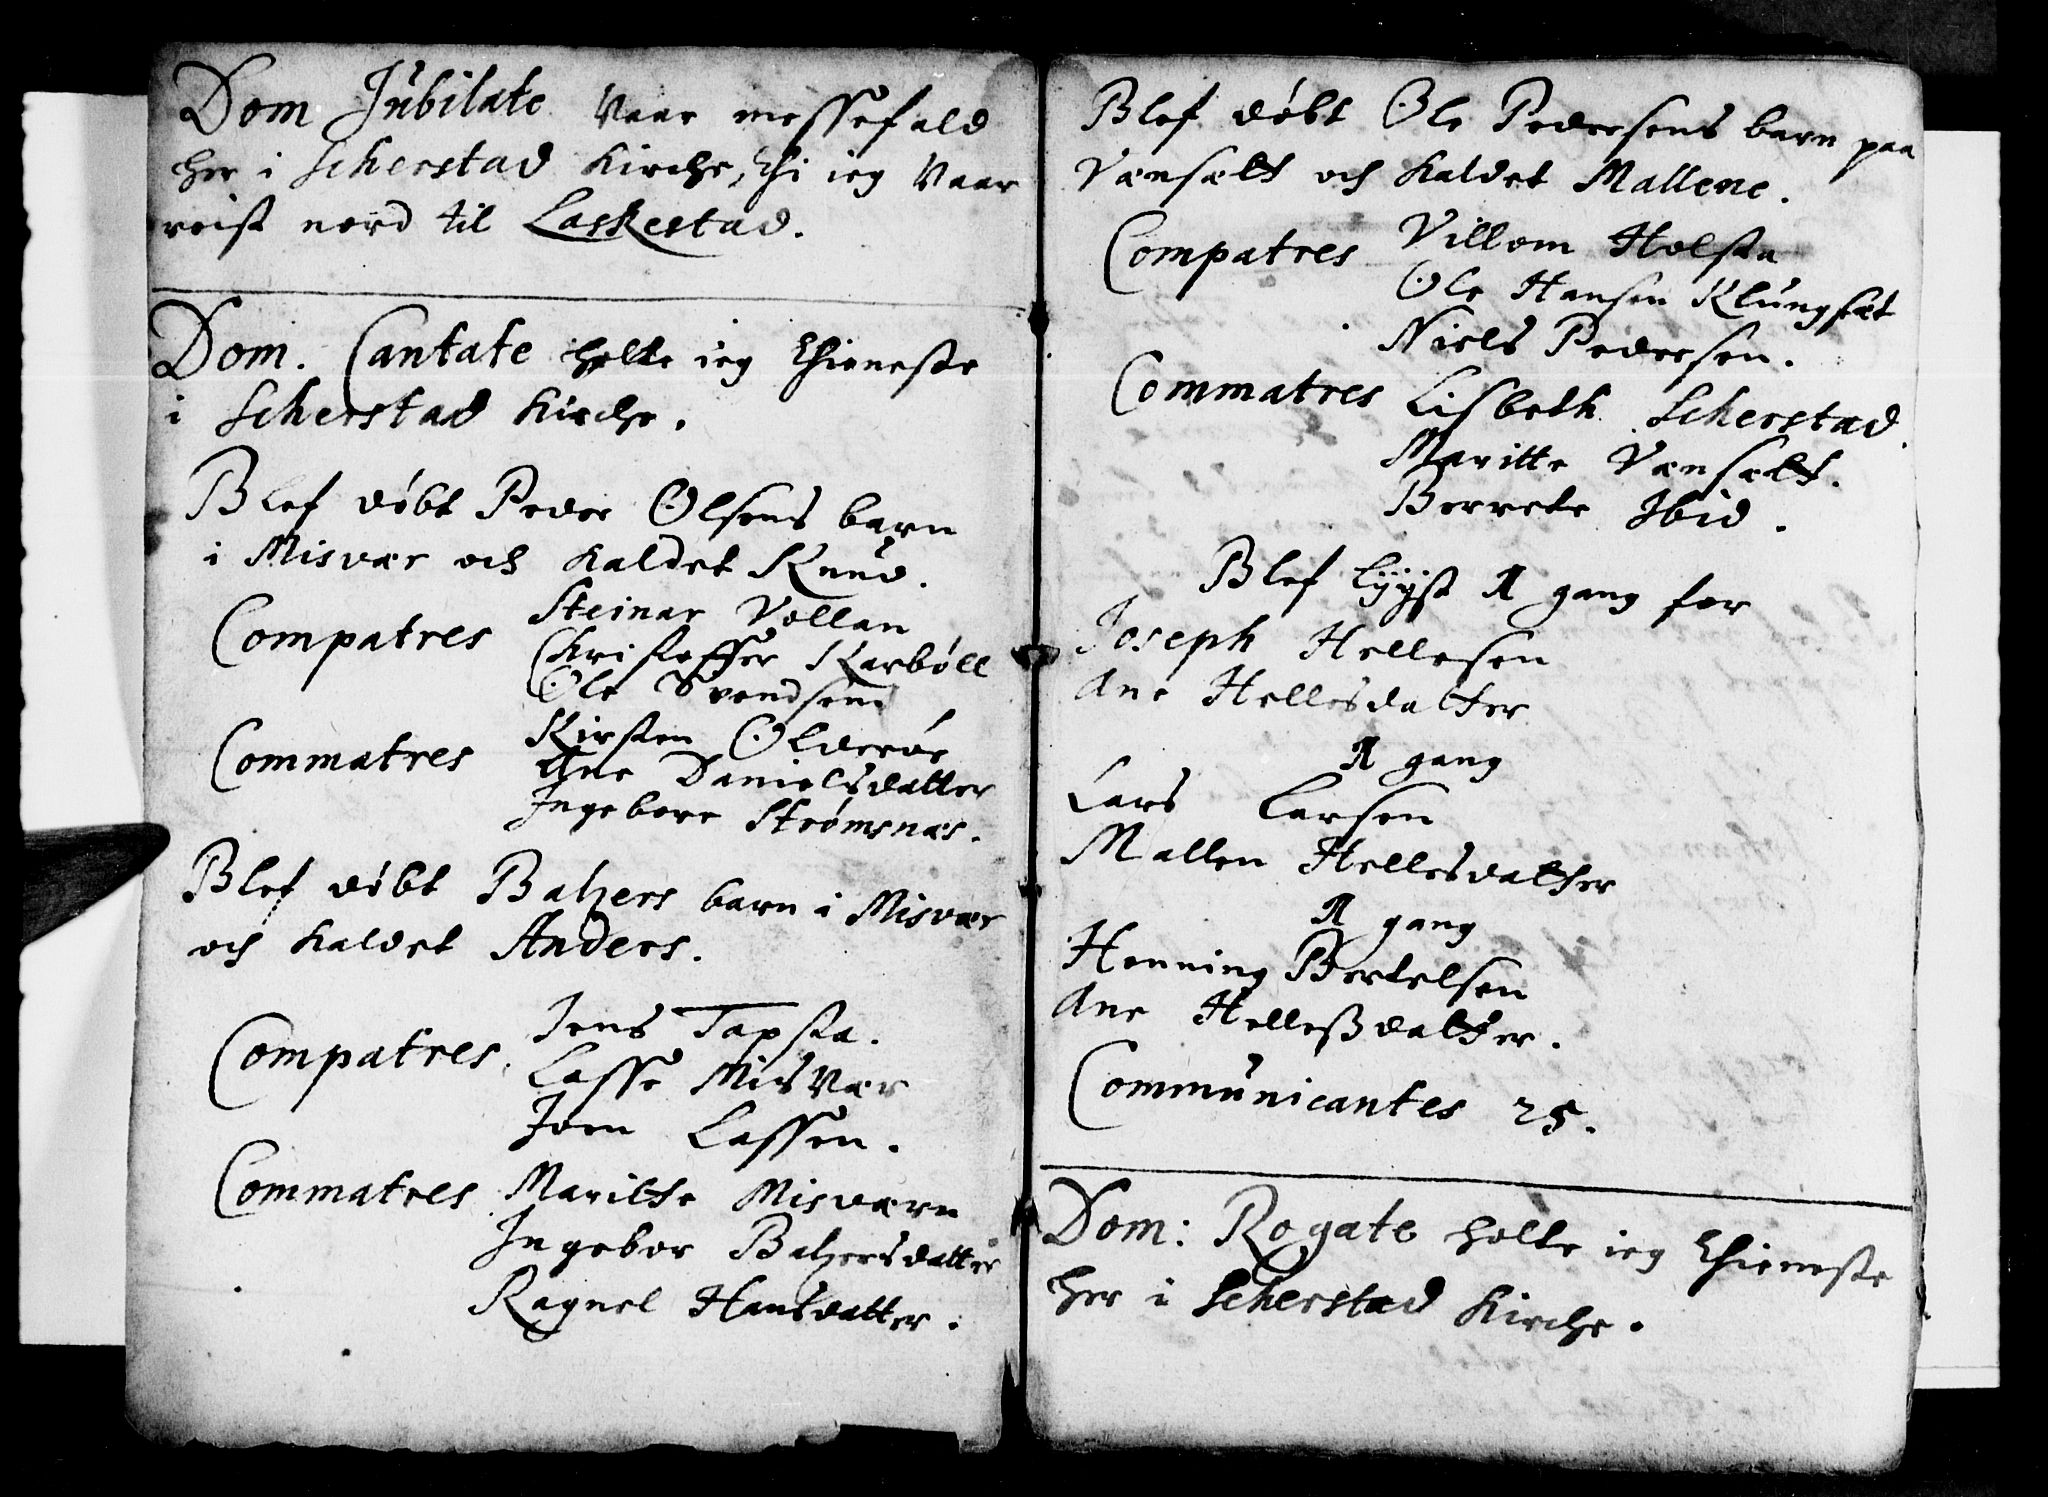 Dom Jubilate Vaar messefald
her i Scherstad Kirche, thi ieg Vaar
reist nord til Laskestad.
Dom. Cantate holte ieg thieneste
i Scherstad Kirche.
Blef døbt Peder Olsens barn
i Misvær och Kaldet Knud.
Compatres Steinar Vollan
Christoffer Karbøll
Ole Svendsen
Commatres Kirsten Olderør
Ane Danielsdatter
Ingebore Strømsnæs.
Blef døbt Balzers barn i Misvær
och Kaldet Anders.
Compatres. Jens Tapsta.
Lasse MisVær
Joen Lassen.
Commatres Maritte Misværn
Ingebor Balzersdatter
Ragnel Hansdatter.
Blef døbt Ole Pedersens barn paa
Vænsælt och Kaldet Mallene.
Compatres Villom Holsta
Ole Hansen Klungsæt
Niels Pedersen.
Commatres Lisbeth Scherstad.
Maritte Vænsælt.
Berrete Ibid.
Blef lÿÿst 1 gang for
Joseph Hellesen
Ane Hellesdatter
1 gang
Lars Larsen
Mallen Hellesdatter
1 gang
Henning Bertelsen
Ane Hellesdatter.
Communicantes 25.
Dom: Rogate holte ieg thieneste
her i Scherstad Kirche.